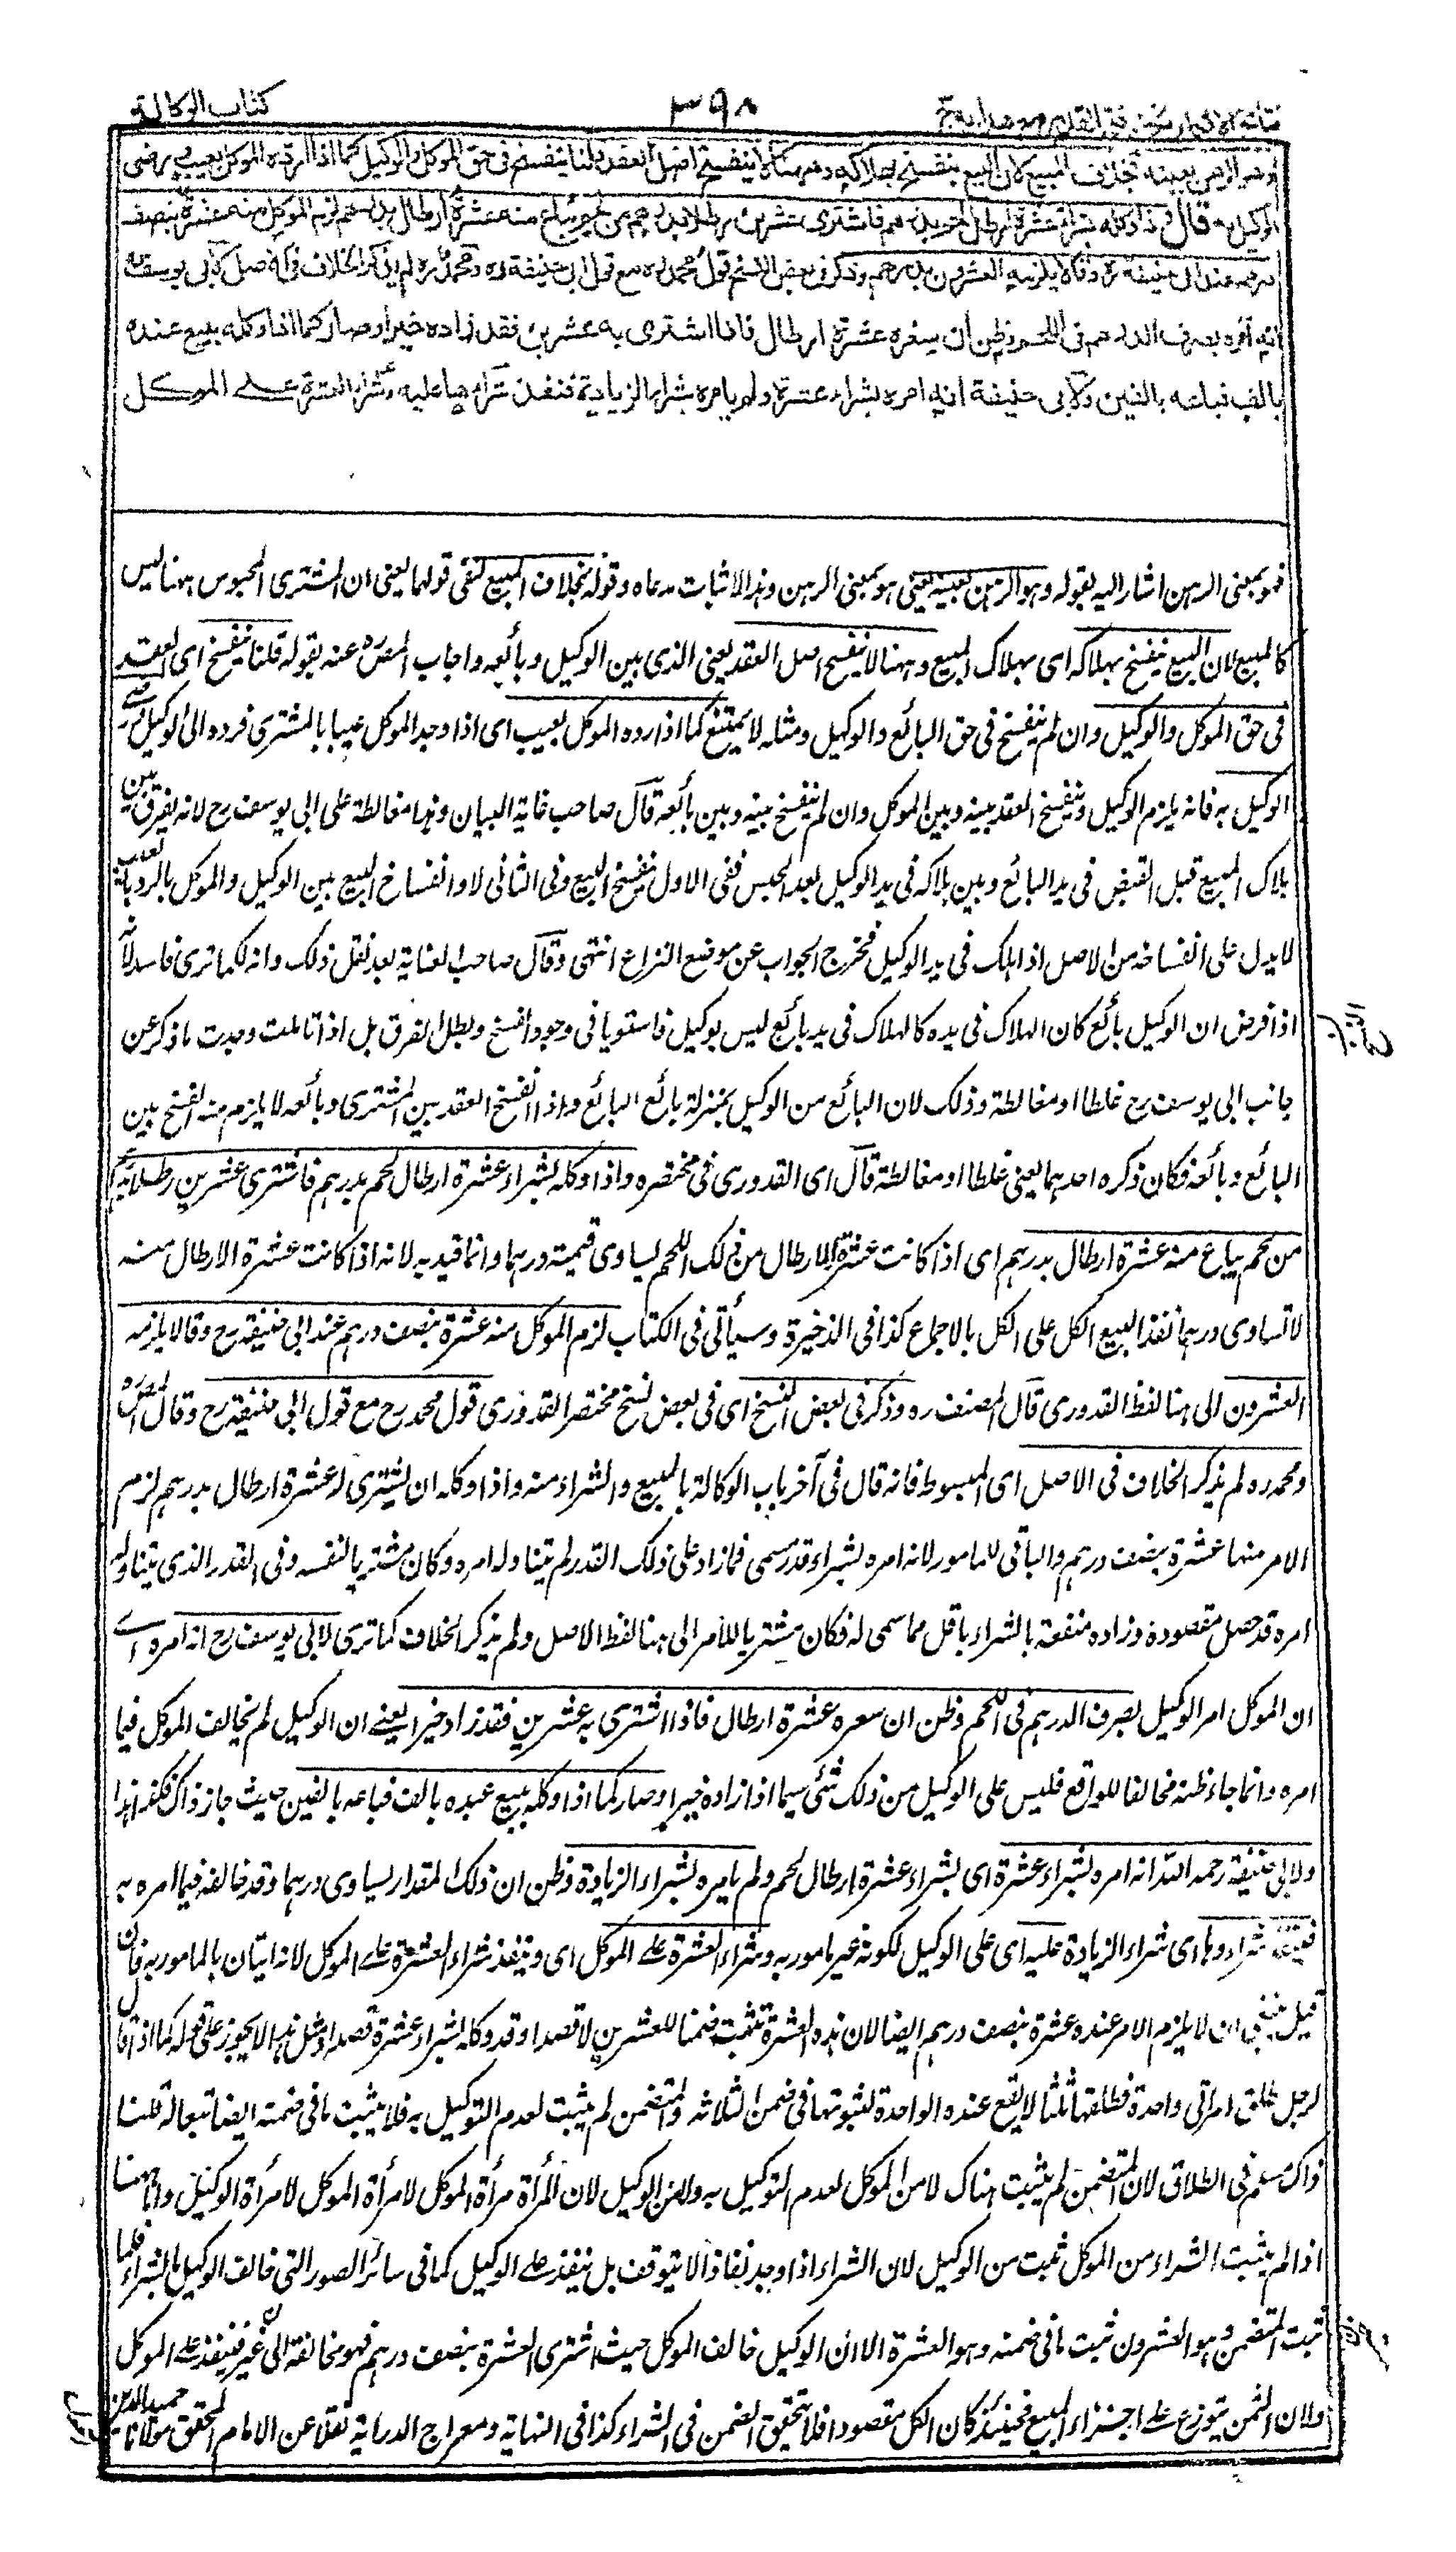 كتاب الوكالة
٣٩٨
نتائج الافكار تكملة فتح القدير مع هداية ج
وهو الرهن بعينه بخلاف المبيع لان البيع ينفسخ بهلاكه وههنا لا ينفسخ اصل العقد قلنا ينفسخ في حق الموكل والوكيل كما اذا رده الموكل بعيب ورضي
الوكيل به قال واذا وكله بشراء عشرة ارطال لحم بدرهم فاشترى عشرين رطلا بدرهم من لحم يباع منه عشرة ارطال بدرهم لزم الموكل منه عشرة بنصف
درهم عند ابي حنيفة ره وقالا يلزمه العشرون بدرهم وذكر في بعض النسخ قول محمد ره مع قول ابي حنيفة ره ومحمد ره لم يذكر الخلاف في الاصل لابي يوسف ره
انه امره بصرف الدرهم في اللحم وظن ان سعره عشرة ارطال فاذا اشترى به عشرين فقد زاده خيرا وصار كما اذا وكله ببيع عبده
بالف فباعه بالفين ولابي حنيفة انه امره بشراء عشرة ولم يامره بشراء الزيادة فنفذ شراءها عليه وشراء العشرة على الموكل
فهو بمعنى الرهن اشار اليه بقوله وهو الرهن بعينه يعني هو بمعنى الرهن وهذا لاثبات مدعاه وقوله بخلاف المبيع لنفي قولهما يعني ان المشترى المحبوس ههنا ليس
كالمبيع لان البيع ينفسخ بهلاكه اى بهلاك المبيع وههنا لا ينفسخ اصل العقد يعني الذي بين الوكيل وبائعه واجاب المص ره عنه بقوله قلنا ينفسخ اى العقد
في حق الموكل والوكيل وان لم ينفسخ في حق البائع والوكيل ومثله لا يمتنع كما اذا رده الموكل بعيب اى اذا وجد الموكل عيبا بالمشترى فرده الى الوكيل ورضي
الوكيل به فانه يلزم الوكيل وينفسخ العقد بينه وبين الموكل وان لم ينفسخ بينه وبين بائعه قال صاحب غاية البيان وهذا مغالطة على ابي يوسف رح لانه يفرق بين
هلاك المبيع قبل القبض في يد البائع وبين هلاكه في يد الوكيل بعد الحبس ففي الاول ينفسخ البيع وفي الثاني لا وانفساخ البيع بين الوكيل والموكل بالرد بالعيب
لا يدل على انفساخه من الاصل اذا هلك في يد الوكيل فخرج الجواب عن موضع النزاع انتهى وقال صاحب العناية بعد نقل ذلك وانه لكما ترى فاسد لانه
اذا فرض ان الوكيل بائع كان الهلاك في يده كالهلاك في يد بائع ليس بوكيل فاستويا في وجود الفسخ وبطل الفرق بل اذا تاملت وجدت ما ذكر عن
جانب ابي يوسف رح غلطا او مغالطة وذلك لان البائع من الوكيل بمنزلة بائع البائع واذا انفسخ العقد بين المشترى وبائعه لا يلزم منه الفسخ بين
البائع وبائعه فكان ذكره احدهما يعني غلطا او مغالطة قال اى القدوري في مختصره واذا وكله بشراء عشرة ارطال لحم بدرهم فاشترى عشرين رطلا بدرهم
من لحم يباع منه عشرة ارطال بدرهم اى اذا كانت عشرة الارطال من ذلك اللحم يساوى قيمته درهما وانما قيد به لانه اذا كانت عشرة الارطال منه
لا تساوى درهما نفذ البيع الكل على الكل بالاجماع كذا في الذخيرة وسيأتى في الكتاب لزم الموكل منه عشرة بنصف درهم عند ابي حنيفة رح وقالا يلزمه
العشرون الى هنا لفظ القدوري قال المصنف ره وذكر في بعض النسخ اى في بعض نسخ مختصر القدوري قول محمد رح مع قول ابي حنيفة رح وقال المص ره
ومحمد ره لم يذكر الخلاف في الاصل اى المبسوط فانه قال في آخر باب الوكالة بالبيع والشراء منه واذا وكله ان يشترى له عشرة ارطال بدرهم لزم
الامر منها عشرة بنصف درهم والباقي للمامور لانه امره بشراء قدر مسمى فما زاد على ذلك القدر لم يتناوله امره وكان مشتريا لنفسه وفي القدر الذي يتناوله
امره قد حصل مقصوده وزاده منفعة بالشراء باقل مما سمى له فكان مشتريا للآمر الى هنا لفظ الاصل ولم يذكر الخلاف كما ترى لابي يوسف رح انه امره اى
ان الموكل امر الوكيل بصرف الدرهم في اللحم وظن ان سعره عشرة ارطال فاذا اشترى به عشرين فقد زاد خيرا يعني ان الوكيل لم يخالف الموكل فيما
امره وانما جاء ظنه مخالفا للواقع فليس على الوكيل من ذلك شئ سيما اذا زاده خيرا وصار كما اذا وكله ببيع عبده بالف فباعه بالفين حيث جاز ذاك فكذا هذا
ولابي حنيفة رحمه الله انه امره بشراء عشرة اى بشراء عشرة ارطال لحم ولم يامره بشراء الزيادة وظن ان ذلك المقدار يساوى درهما وقد خالفه فيما امره به
فينفذ شراءها اى شراء الزيادة عليه اى على الوكيل لكونه غير مامور به وشراء العشرة على الموكل اى وينفذ شراء العشرة على الموكل لانه اتيان بالمامور به فان
قيل ينبغي ان لا يلزم الامر عنده عشرة بنصف درهم ايضا لان هذه العشرة تثبت ضمنا للعشرين لا قصدا وقد وكله بشراء عشرة قصدا ومثل هذا لا يجوز على قوله كما اذا قال
لرجل طلق امراتي واحدة فطلقها ثلثا لا يقع عنده الواحدة لثبوتها في ضمن الثلاثة والمتضمن لم يثبت لعدم التوكيل به فلا يثبت ما في ضمنه ايضا تبعا له قلنا
ذاك مسلم في الطلاق لان المتضمن لم يثبت هناك لا من الموكل لعدم التوكيل به ولا من الوكيل لان المرأة مرأة الموكل لا مرأة الوكيل واما ههنا
اذا لم يثبت الشراء من الموكل ثبت من الوكيل لان الشراء اذا وجد نفاذا لا يتوقف بل ينفذ على الوكيل كما في سائر الصور التي خالف الوكيل بالشراء فلما
ثبت المتضمن وهو العشرون ثبت ما في ضمنه وهو العشرة الا ان الوكيل خالف الموكل حيث اشترى العشرة بنصف درهم فهو مخالفة الى خير فينفذ على الموكل
ولان الثمن يتوزع على اجزاء المبيع فحينئذ كان الكل مقصودا فلا يتحقق الضمن في الشراء كذا في النهاية ومعراج الدراية نقلا عن الامام المحقق مولانا حميد الدين